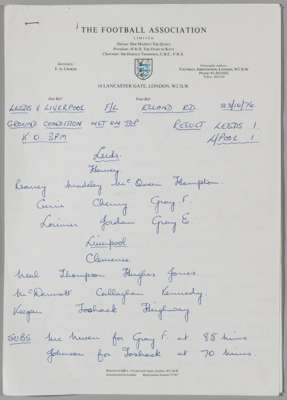 THE FOOTBALL ASSOCIATION
LIMITED
Patron: HER MAJESTY THE QUEEN
President: H.R.H. THE DUKE OF KENT
Chairman: SIR HAROLD THOMPSON, C.B.E., F.R.S.
Secretary:
16 LANCASTER GATE, LONDON, W2 3LW
LEEDS v LIVERPOOL F/L ELLAND RD. 23/10/76
GROUND CONDITION WET ON TOP RESULT LEEDS 1
K.O 3PM L/POOL 1
Leeds.
Harvey
Reaney Madeley Mc Queen Hampton.
Currie Cherry Gray F.
Lorimer Jordan Gray E
Liverpool
Clemence
Neal Thompson Hughes Jones.
McDermott Callaghan Kennedy
Keegan Toshack Heighway
SUBS Mc Niven for Gray F. at 85 mins
Johnson for Toshack at 70 mins.